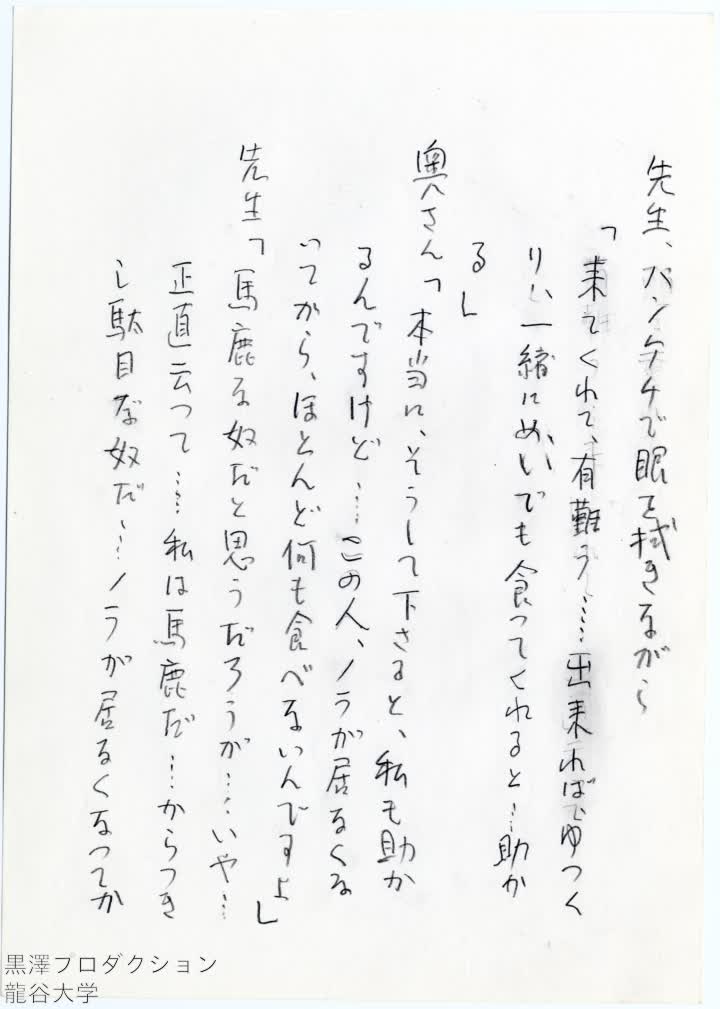 先生、ハンケチで眼を拭きながら
「来てくれて、有難う……出来ればでゆつく
り、一緒にめしでも食つてくれると…助か
る」
奥さん「本当に、そうして下さると、私も助か
るんですけど……この人、ノラが居なくな
いてから、ほとんど何も食べないんですよ」
先生「馬鹿な奴だと思うだろうが……いや…
正直云つて……私は馬鹿だ…からつき
し駄目な奴だ……ノラが居なくなつてか
黒澤プロダクション
龍谷大学